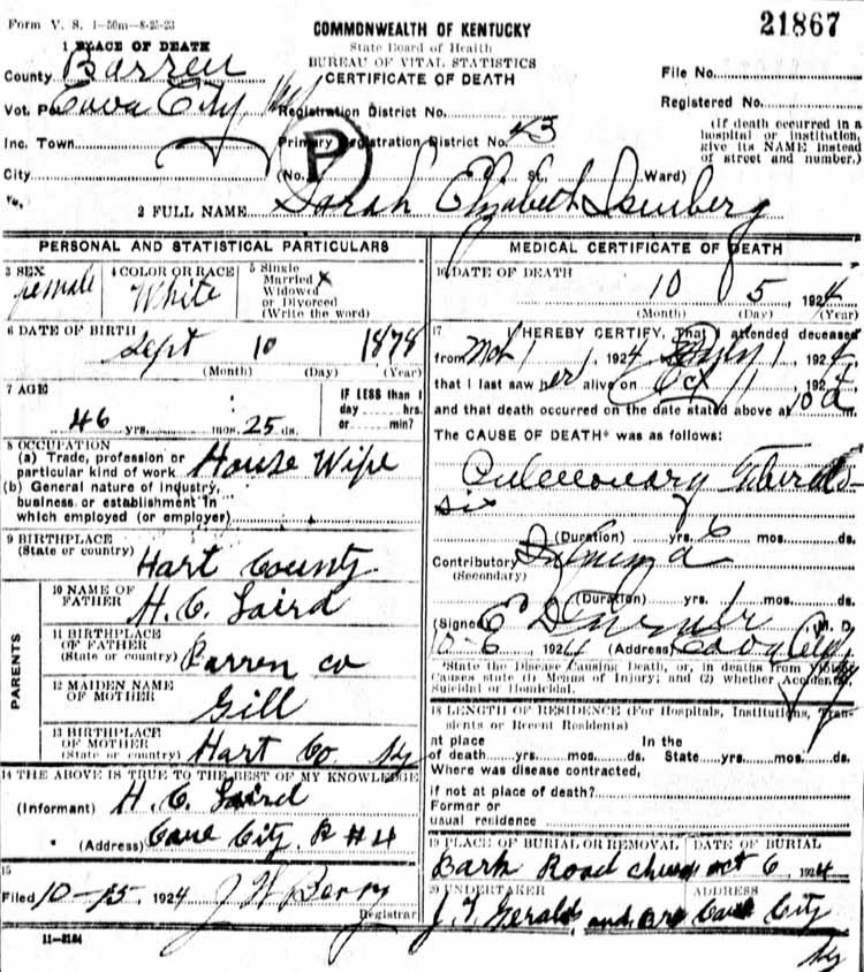 Form V. S. 1-50m-8-25-23
COMMONWEALTH OF KENTUCKY
21867
State Board of Health
BUREAU OF VITAL STATISTICS
CERTIFICATE OF DEATH
1 PLACE OF DEATH
County Barren
File No.
Vot. Pct Cave City, Ky Registration District No.
Registered No.
Inc. Town Primary Registration District No. 43
(If death occurred in a hospital or institution, give its NAME instead of street and number.)
City (No. St. Ward)
P
2 FULL NAME Sarah Elizabeth Isenberg
PERSONAL AND STATISTICAL PARTICULARS
3 SEX female
4 COLOR OR RACE White
5 Single
Married X
Widowed
or Divorced
(Write the word)
6 DATE OF BIRTH
Sept 10 1878
(Month) (Day) (Year)
7 AGE
46 yrs. mos. 25 ds.
IF LESS than 1
day hrs.
or min?
8 OCCUPATION
(a) Trade, profession or
particular kind of work House Wife
(b) General nature of industry,
business or establishment in
which employed (or employer)
9 BIRTHPLACE
(State or country) Hart County
PARENTS
10 NAME OF
FATHER H. C. Laird
11 BIRTHPLACE
OF FATHER
(State or country) Barren co
12 MAIDEN NAME
OF MOTHER
Gill
13 BIRTHPLACE
OF MOTHER
(State or country) Hart Co. Ky
14 THE ABOVE IS TRUE TO THE BEST OF MY KNOWLEDGE
(Informant) H. C. Laird
(Address) Cave City, R #4
15
Filed 10-15, 1924 J W Berry
Registrar
11-3184
MEDICAL CERTIFICATE OF DEATH
16 DATE OF DEATH
10 5, 1924
(Month) (Day) (Year)
17 I HEREBY CERTIFY, That I attended deceased
from Mch 1, 1924 1, 1924
that I last saw her alive on Oct 1, 1924
and that death occurred on the date stated above at 10 a
The CAUSE OF DEATH* was as follows:
Pulmonary Tuberculo-
sis
(Duration) yrs. 6 mos. ds.
Contributory
(Secondary)
(Duration) yrs. 1 mos. ds.
(Signed) E D M. D.
10-6, 1924 (Address) Cave City, Ky
*State the Disease Causing Death, or, in deaths from Violent
Causes state (1) Means of Injury; and (2) whether Accidental,
Suicidal or Homicidal.
18 LENGTH OF RESIDENCE (For Hospitals, Institutions, Tran-
sients or Recent Residents)
at place In the
of death yrs. mos. ds. State yrs. mos. ds.
Where was disease contracted,
if not at place of death?
Former or
usual residence
19 PLACE OF BURIAL OR REMOVAL DATE OF BURIAL
Road Oct 6, 1924
20 UNDERTAKER ADDRESS
J. T. Geralds and Bro Cave City
Ky